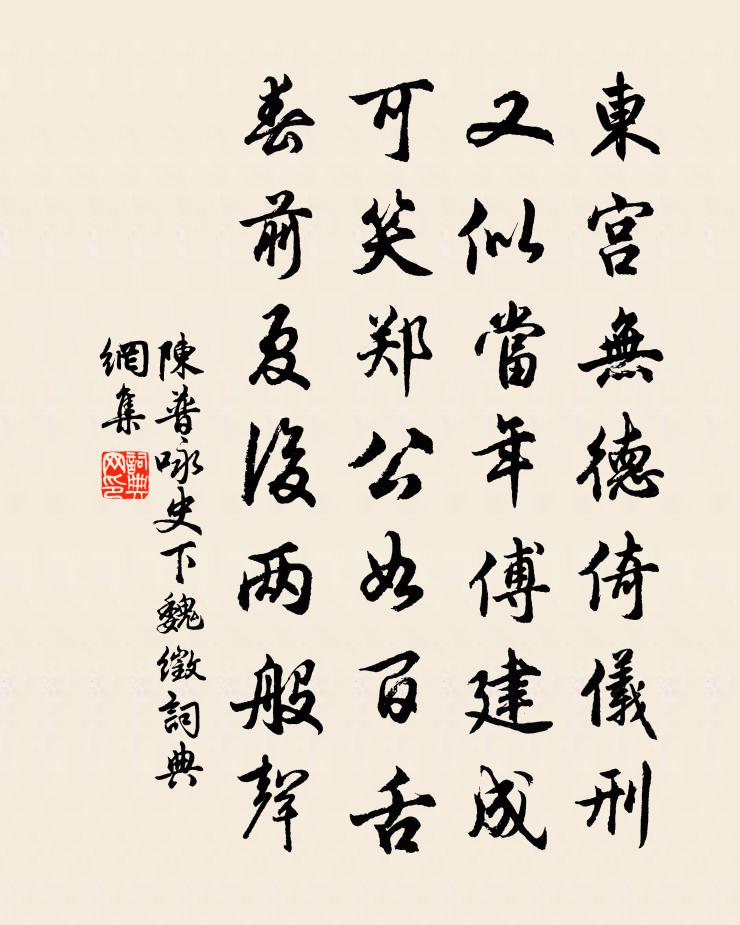 東宮無德倚儀刑
又似當年傅建成
可笑郑公如百舌
春前夏後两般聲
陳普咏史下魏徵詞典
網集
詞典
网印